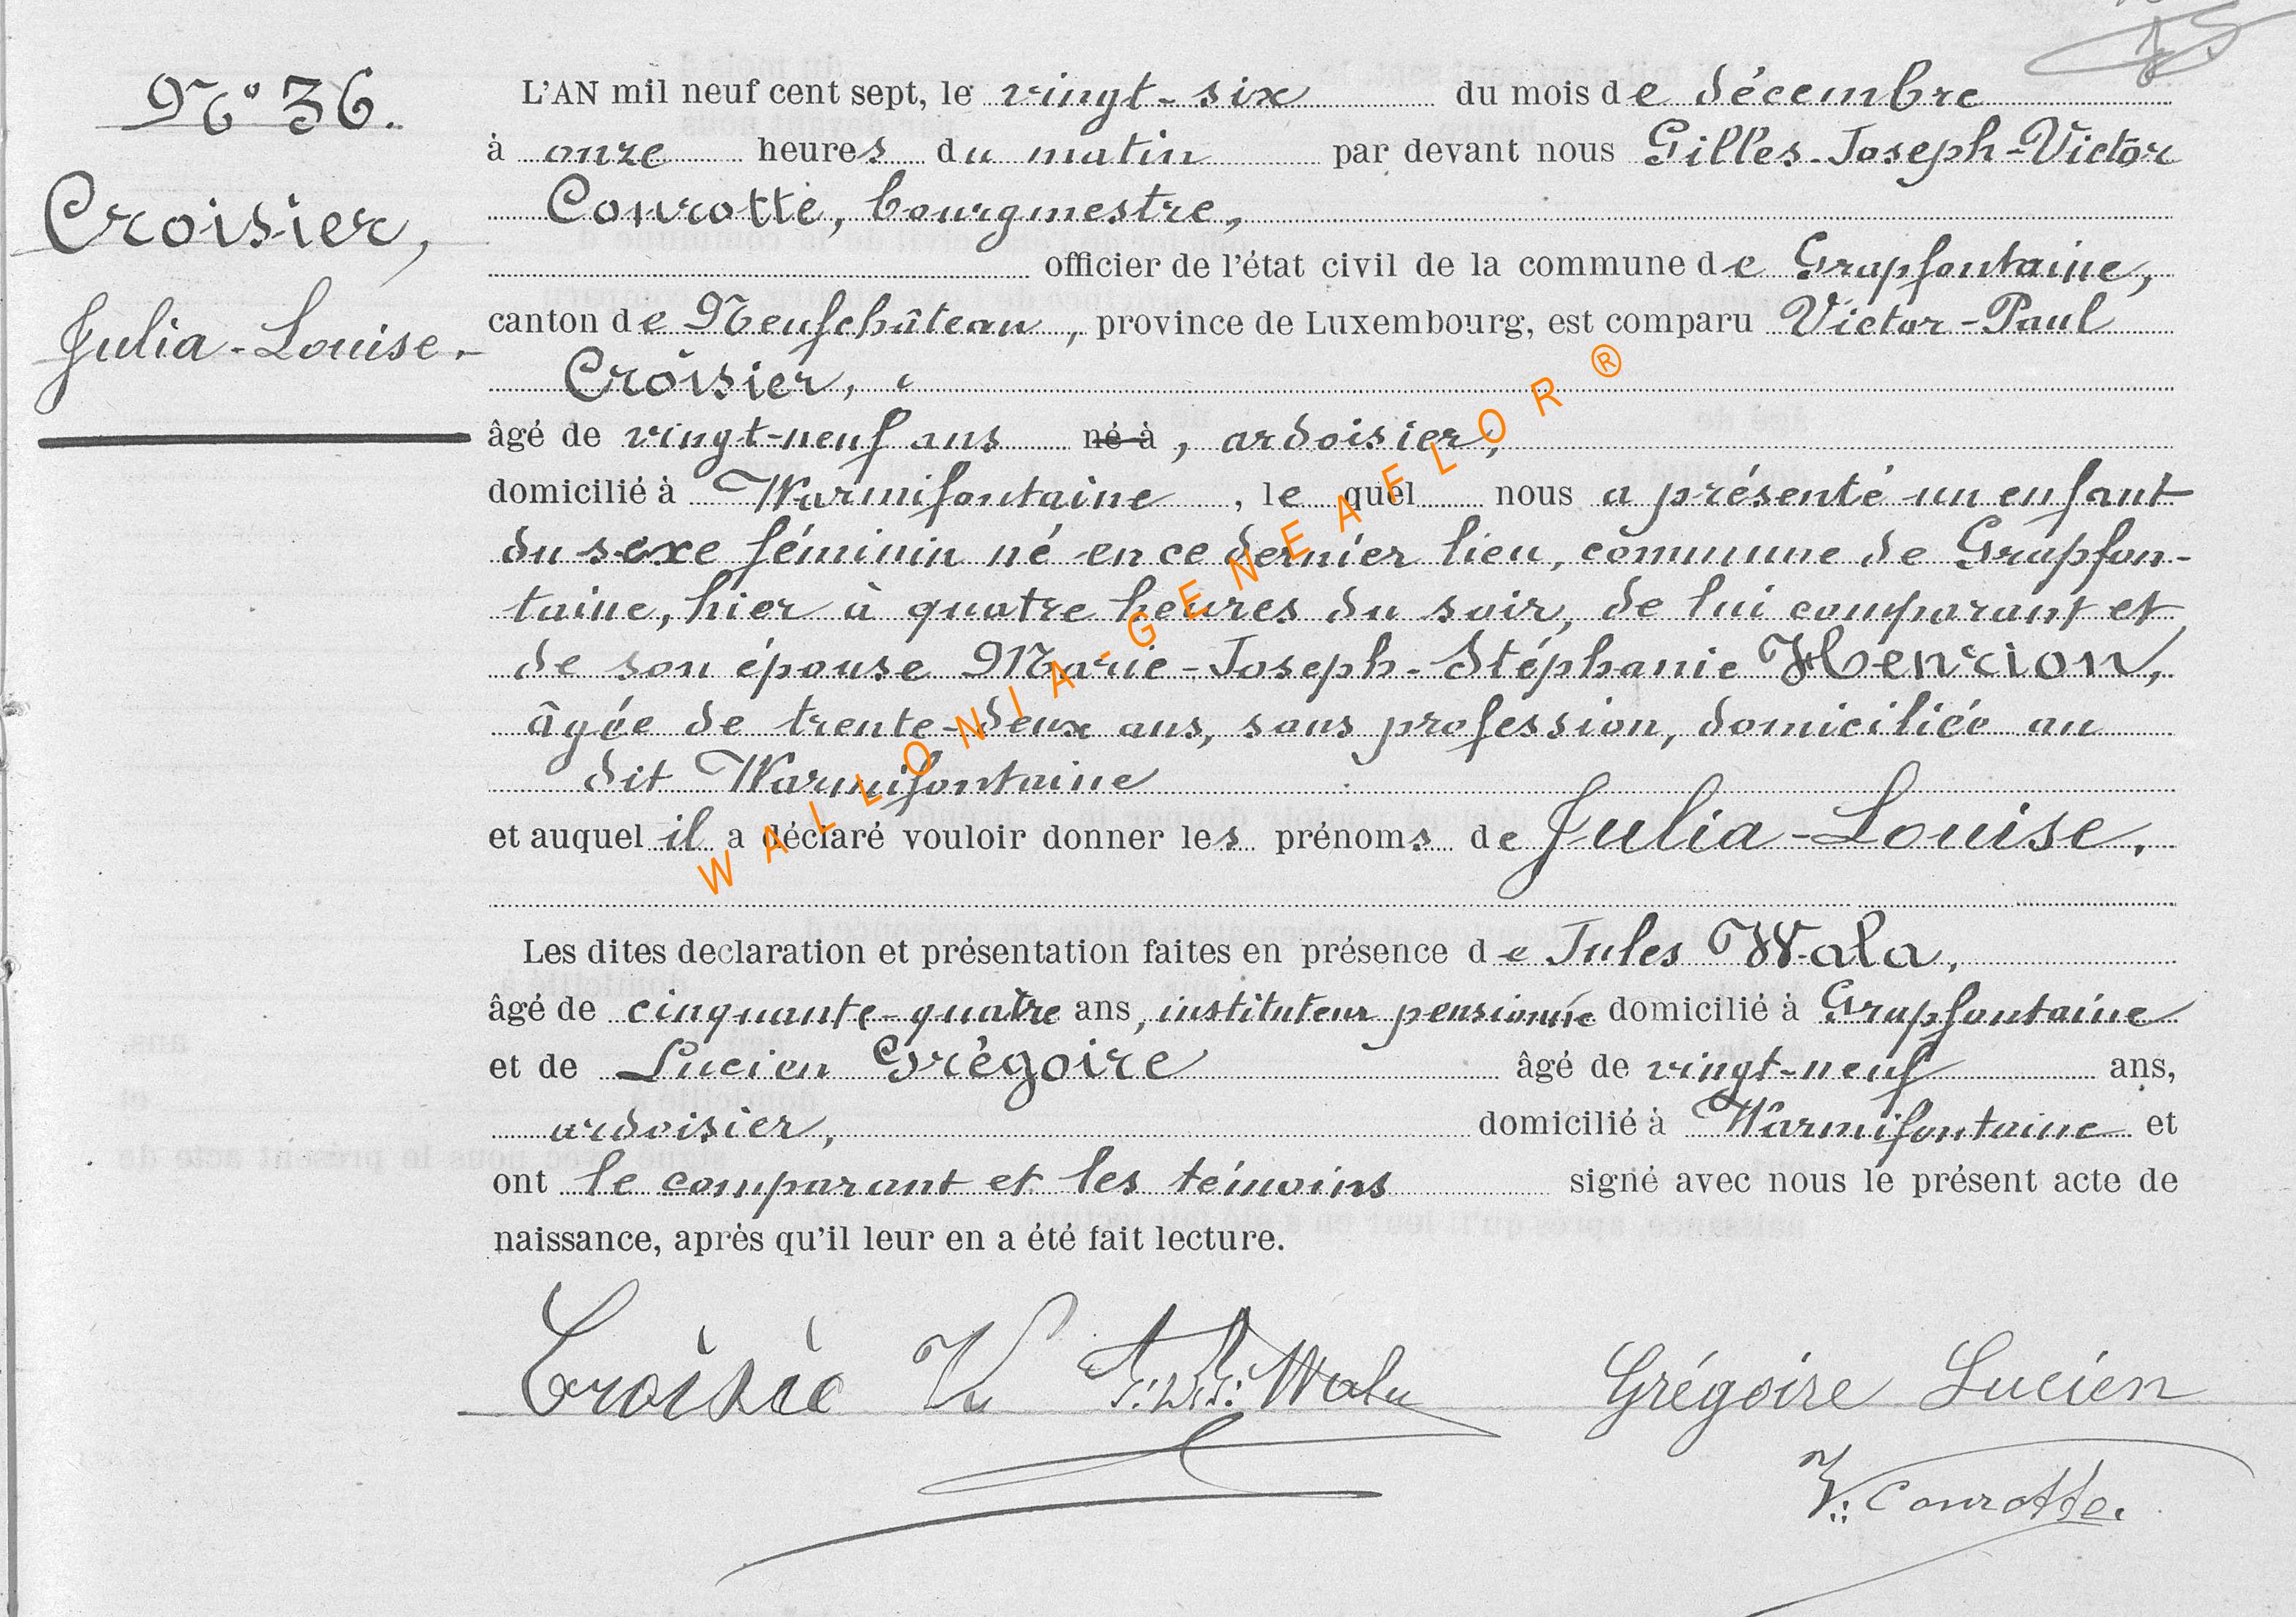 N° 36.
Croisier,
Julia-Louise.
L'AN mil neuf cent sept, le vingt-six du mois de décembre
à onze heures du matin par devant nous Gilles-Joseph-Victor
Conrotte, bourgmestre,
officier de l'état civil de la commune de Grapfontaine,
canton de Neufchâteau, province de Luxembourg, est comparu Victor-Paul
Croisier,
âgé de vingt-neuf ans né à, ardoisier,
domicilié à Warmifontaine, le quel nous a présenté un enfant
du sexe féminin né en ce dernier lieu, commune de Grapfon-
taine, hier à quatre heures du soir, de lui comparant et
de son épouse Marie-Joseph-Stéphanie Henrion,
âgée de trente-deux ans, sans profession, domiciliée au
dit Warmifontaine
et auquel il a déclaré vouloir donner les prénoms de Julia-Louise.
Les dites declaration et présentation faites en présence de Jules Wala,
âgé de cinquante-quatre ans, instituteur pensionné domicilié à Grapfontaine
et de Lucien Grégoire âgé de vingt-neuf ans,
ardoisier, domicilié à Warmifontaine et
ont le comparant et les témoins signé avec nous le présent acte de
naissance, après qu'il leur en a été fait lecture.
Croisié V Wala Grégoire Lucien
V. Conrotte.
WALLONIA-GENEAFLOR ®